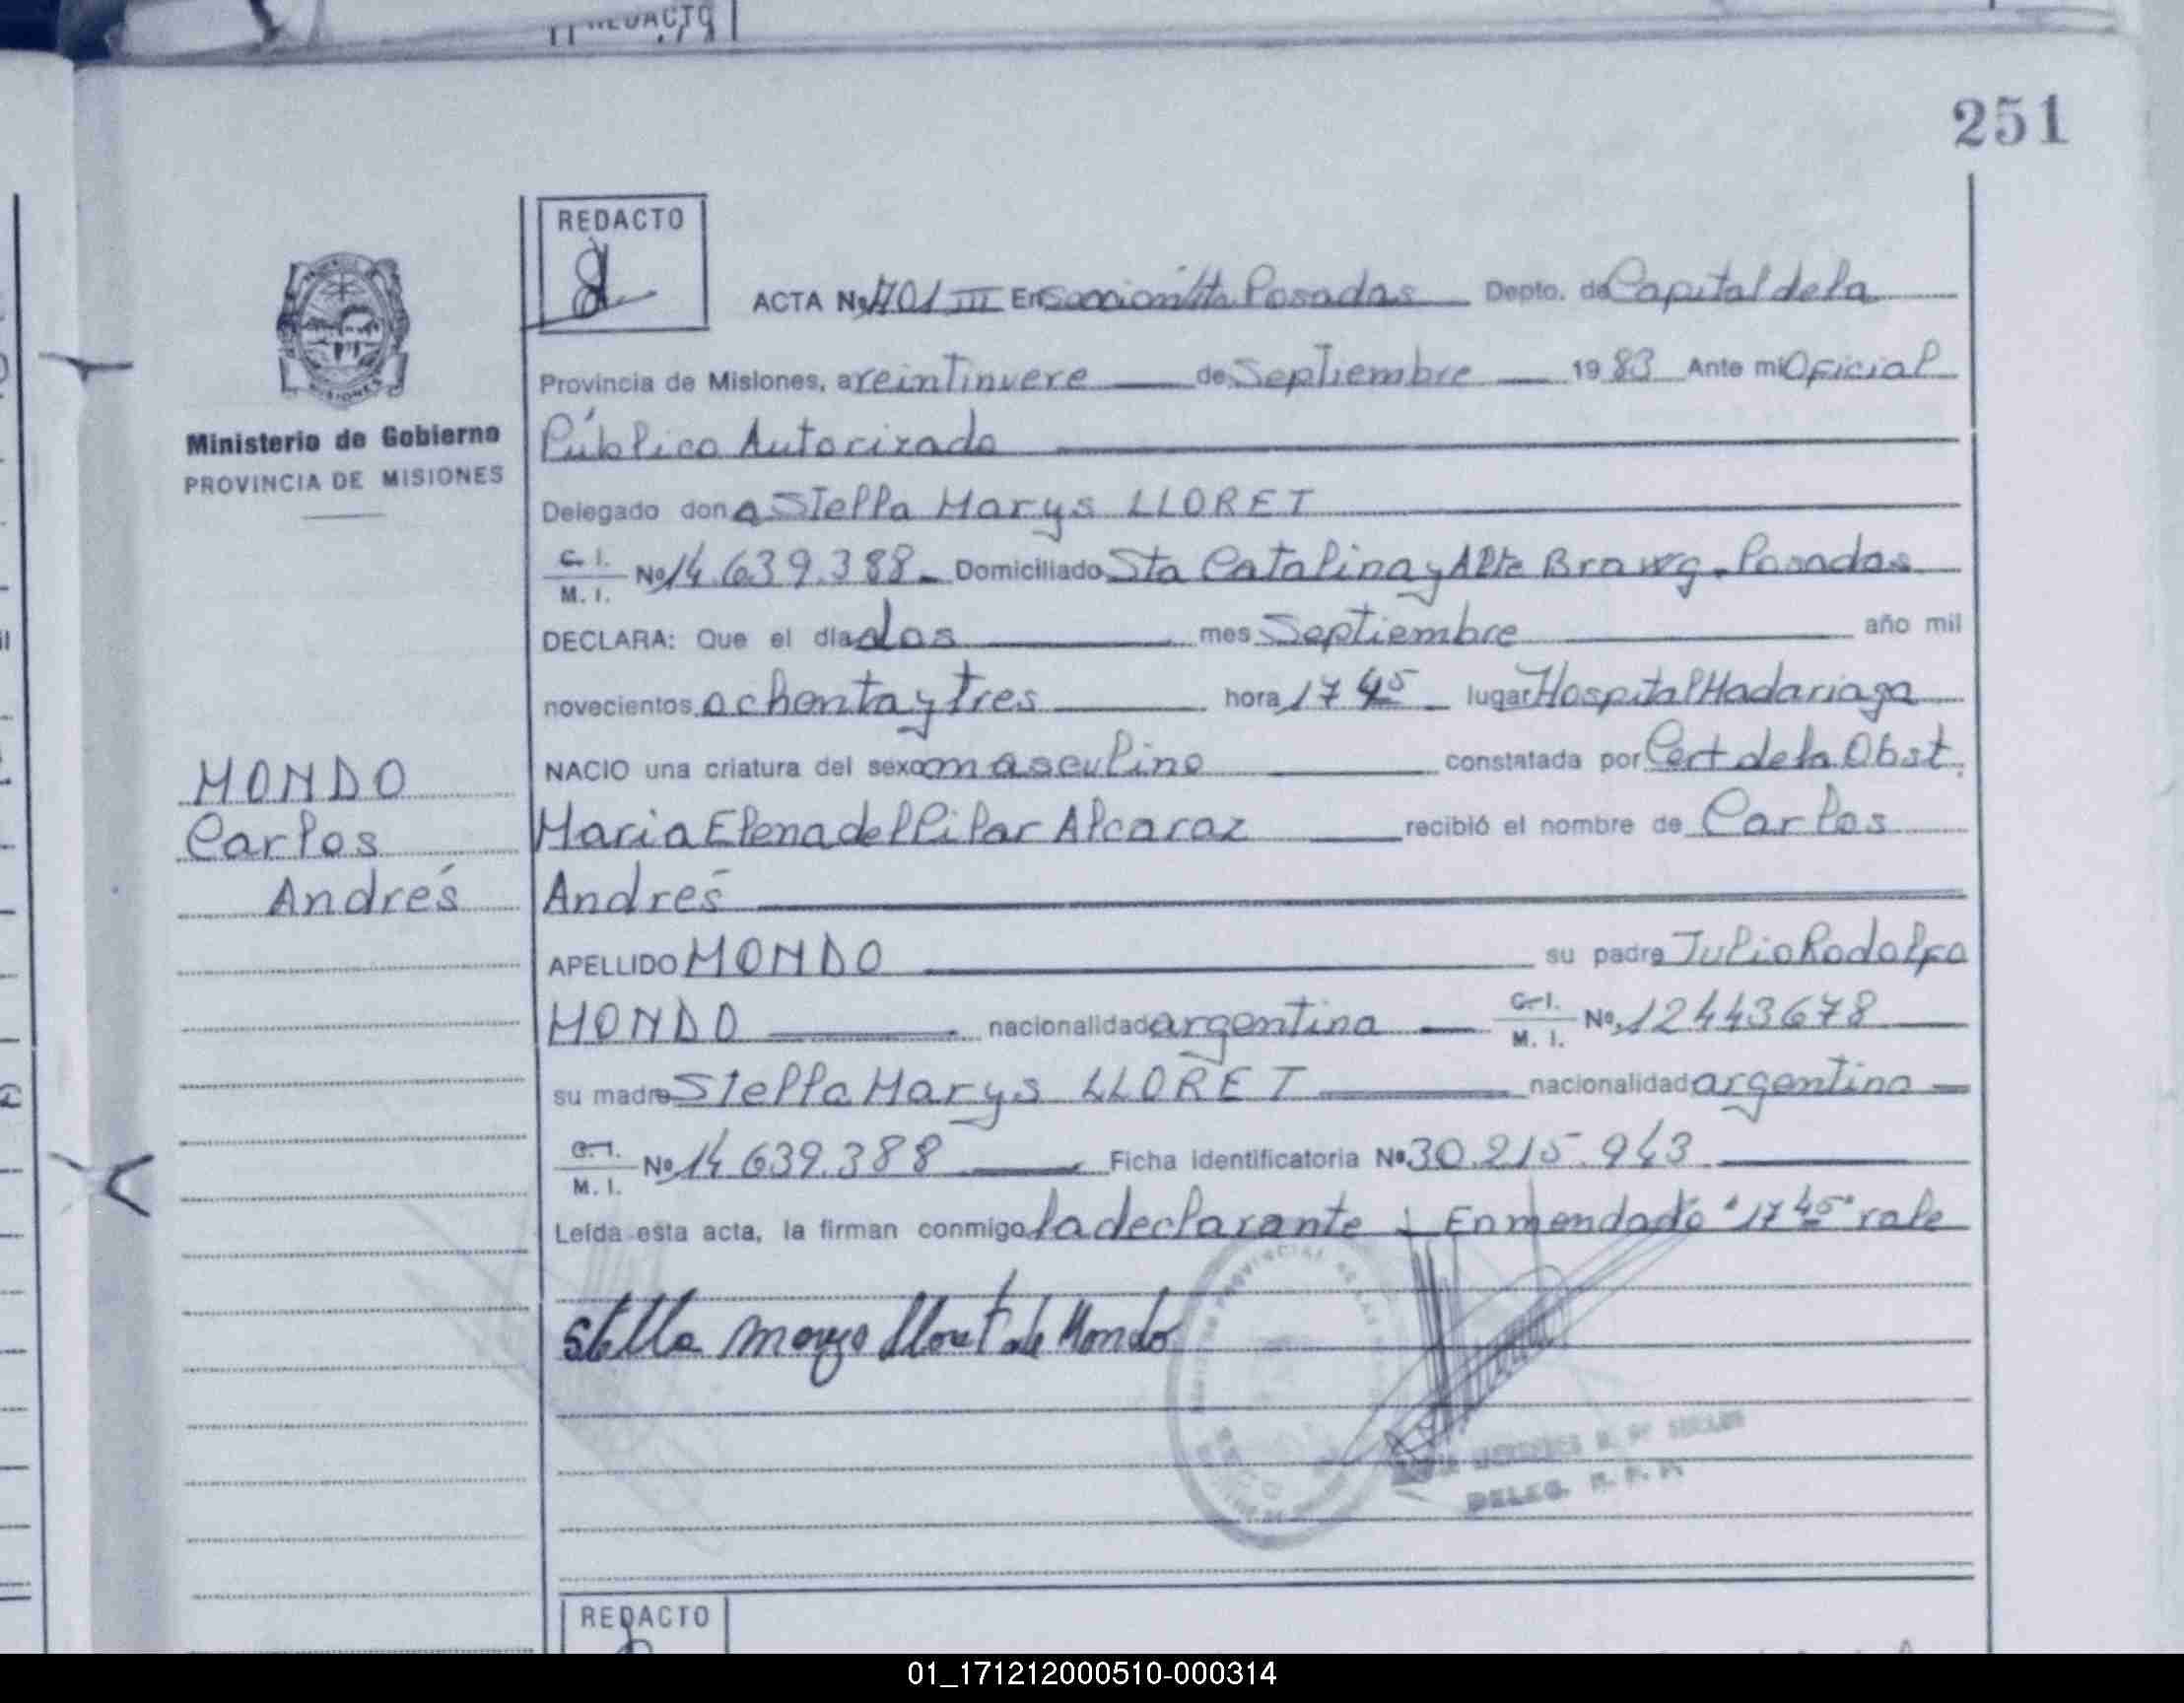 REDACTO
251
REDACTO
ACTA Nº 701 III En Sección 4ta Posadas Depto. de Capital de la
Provincia de Misiones, a veintinueve de Septiembre 1983 Ante mi Oficial
Ministerio de Gobierno
PROVINCIA DE MISIONES
Público Autorizado
Delegado don a Stella Marys LLORET
C. I.
M. I. Nº 14.639.388 Domiciliado Sta Catalina y Alte Brawg. Posadas
DECLARA: Que el día dos mes Septiembre año mil
novecientos ochenta y tres hora 17 45 lugar Hospital Madariaga
NACIO una criatura del sexo masculino constatada por Cert de la Obst.
MONDO
Carlos
Andrés
Maria Elena del Pilar Alcaraz recibió el nombre de Carlos
Andrés
APELLIDO MONDO su padre Julio Rodolfo
MONDO nacionalidad argentina C. I. M. I. Nº 12443678
su madre Stella Marys LLORET nacionalidad argentina
C. I.
M. I. Nº 14 639.388 Ficha identificatoria Nº 30.215.943
Leída esta acta, la firman conmigo la declarante Enmendado "17 45" vale
Stella Marys Lloret de Mondo
DELEG.
REDACTO
01_171212000510-000314